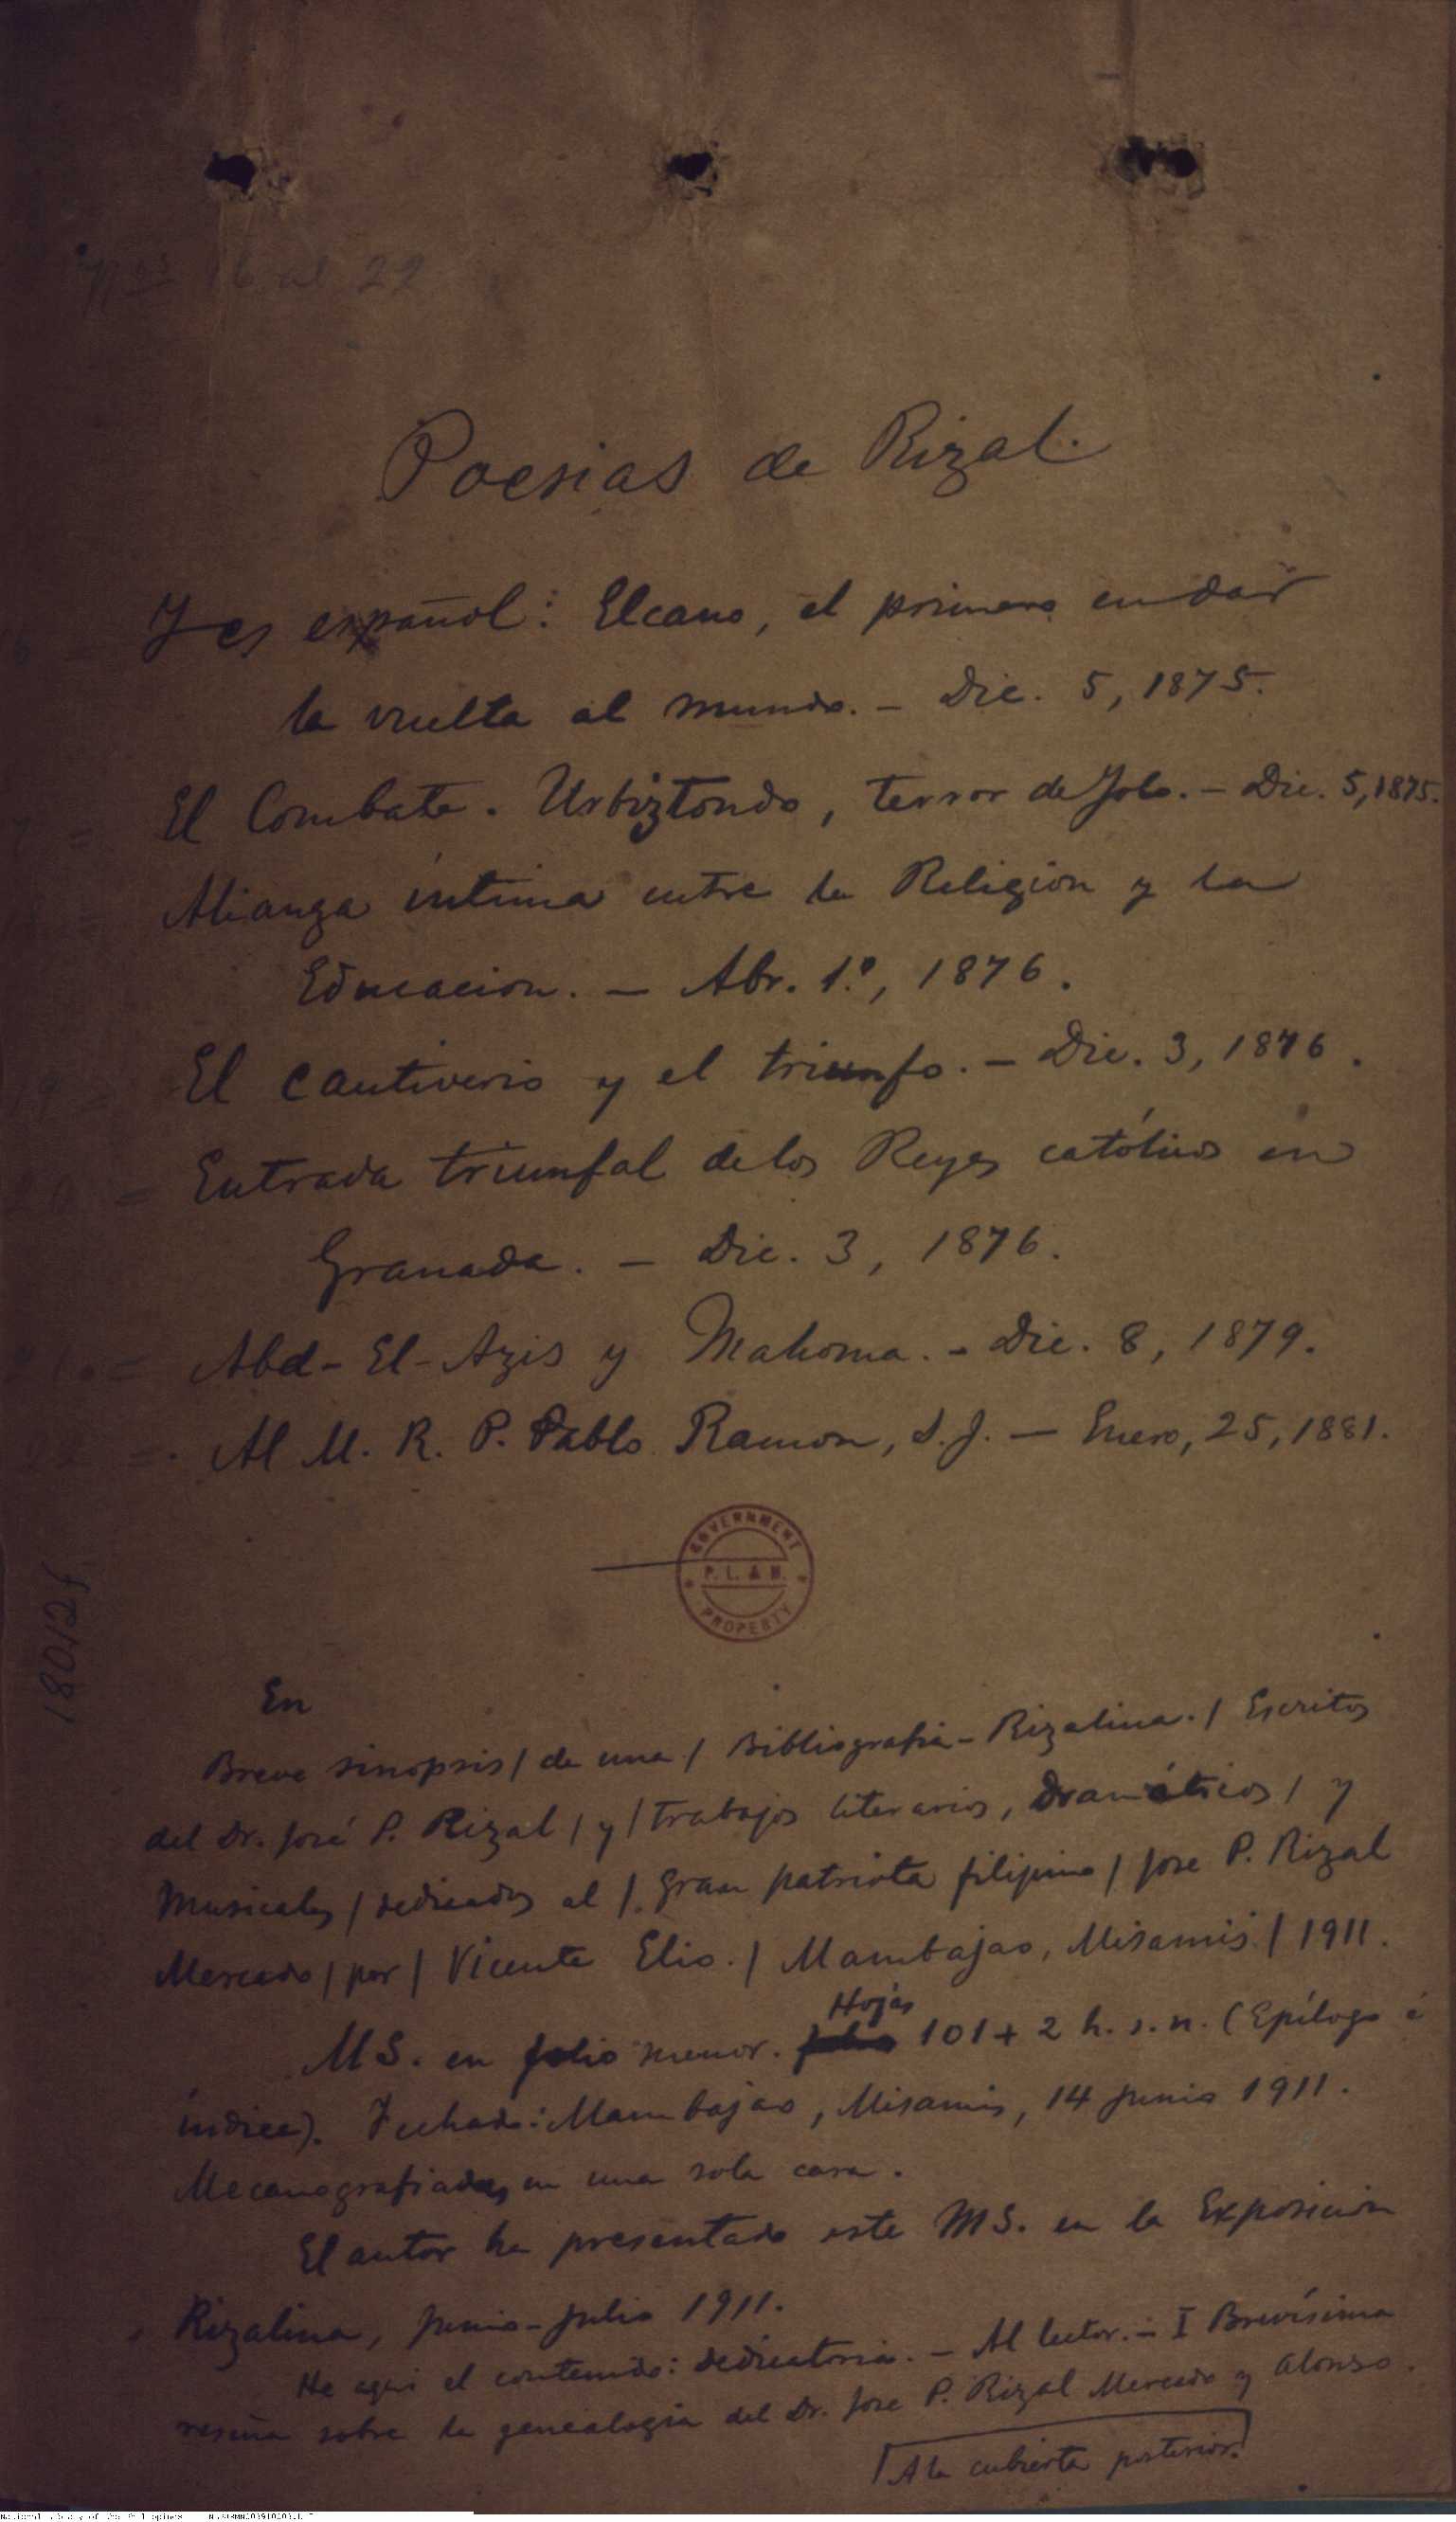 Nos 16 al 22
Poesias de Rizal.
Y es español: Elcano, el primero en dar
la vuelta al mundo. - Dic. 5, 1875.
El Combate. Urbiztondo, terror de Jolo. - Dic. 5, 1875.
Alianza íntima entre la Religion y la
Educacion. - Abr. 1.º, 1876.
19 = El Cautiverio y el triunfo. - Dic. 3, 1876.
20 = Entrada triunfal de los Reyes católicos en
Granada. - Dic. 3, 1876.
Abd-El-Azis y Mahoma. - Dic. 8, 1879.
22 = Al M. R. P. Pablo Ramon, S.J. - Enero, 25, 1881.
GOVERNMENT
P. L. & M.
PROPERTY
En
Breve sinopsis / de una / Bibliografia - Rizalina. / Escritos
del Dr. José P. Rizal / y / trabajos literarios, dramáticos / y
Musicales / dedicados al / gran patriota filipino / Jose P. Rizal
Mercado / por / Vicente Elio. / Mambajao, Misamis / 1911.
Hojas
MS. en folio menor. 101 + 2 h. s. n. (Epílogo é
índice). Fechado: Mambajao, Misamis, 14 junio 1911.
Mecanografiadas en una sola cara.
El autor ha presentado este MS. en la Exposicion
Rizalina, Junio-Julio 1911.
He aqui el contenido: dedicatoria. - Al lector. - I Brevísima
reseña sobre la genealogia del Dr. Jose P. Rizal Mercado y Alonso.
A la cubierta posterior.